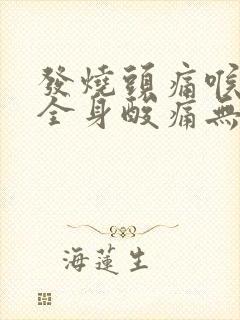 發燒頭痛喉
全身酸痛無
海蓮生